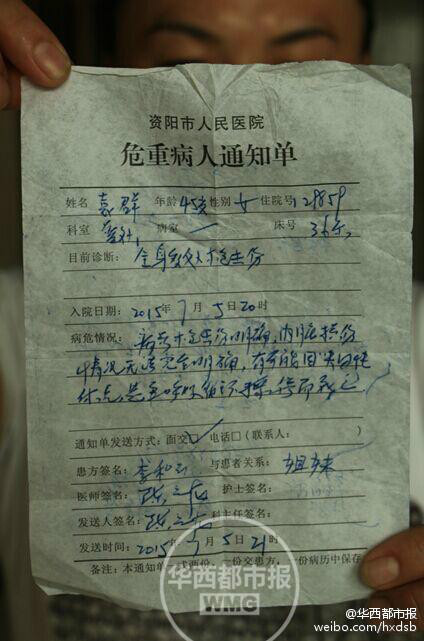 资阳市人民医院
危重病人通知单
姓名 袁群 年龄 45岁 性别 女 住院号 129859
科室 普外 病室 一 床号 36床
目前诊断: 全身多处枪击伤
入院日期: 2015年7月5日20时
病危情况: 枪击伤明确,内脏损伤
情况无法完全明确,有可能因失血性
休克,
通知单发送方式: 面交☑ 电话□ (联系人: )
患方签名: 李和 与患者关系: 姐妹
医师签名: 护士签名:
发送人签名: 科主任签名:
发送时间: 2015年7月5日21时
备注: 本通知单一式两份,一份交患方,一份病历中保存
华西都市报
WMG
@华西都市报
weibo.com/hxdsb